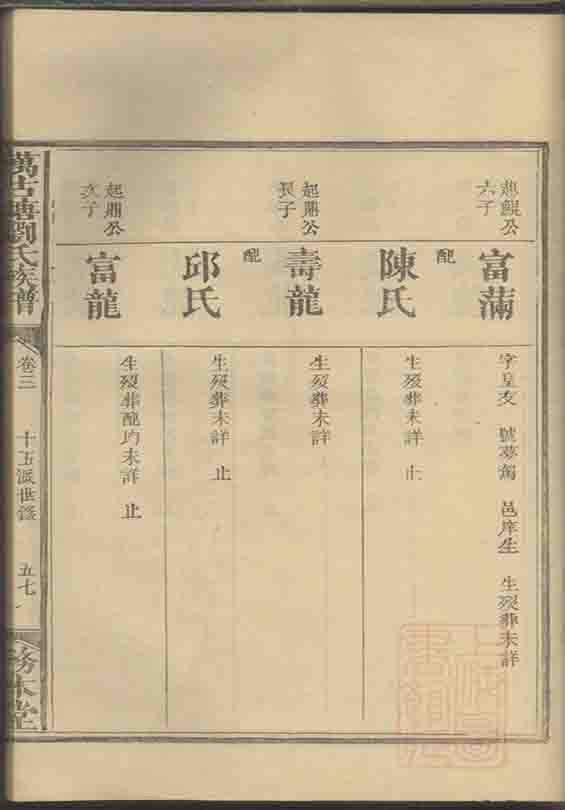 起鯤公
六子
富滿
字皇文 號夢蘭 邑庠生 生歿葬未詳
配
陳氏
生歿葬未詳 止
起鼎公
長子
壽龍
生歿葬未詳
配
邱氏
生歿葬未詳 止
起鼎公
次子
富龍
生歿葬配均未詳 止
萬古塘劉氏族譜
卷三
十五派世錄
五七
務本堂